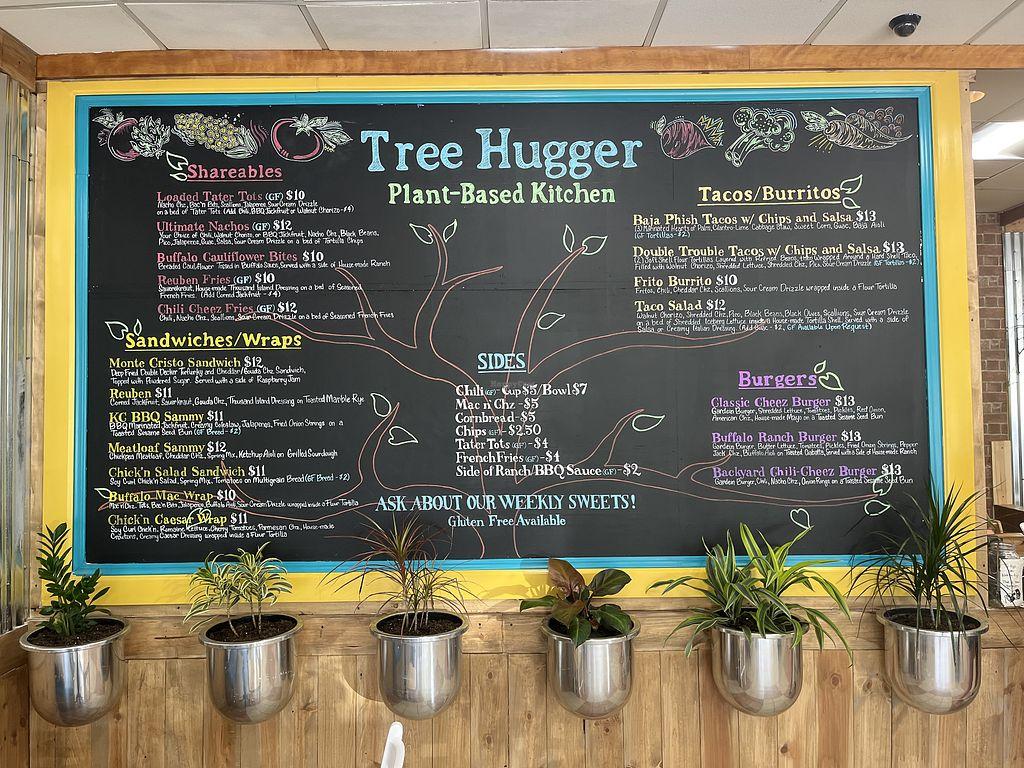 Tree Hugger
Plant-Based Kitchen
Shareables
Loaded Tater Tots (GF) $10
Nacho Chz, Bac'n Bits, Scallions, Jalapeno, Sour Cream Drizzle
on a bed of Tater Tots (Add Chili, BBQ Jackfruit or Walnut Chorizo -$4)
Ultimate Nachos (GF) $12
Your Choice of Chili, Walnut Chorizo, or BBQ Jackfruit, Nacho Chz, Black Beans,
Pico, Jalapenos, Guac, Salsa, Sour Cream Drizzle on a bed of Tortilla Chips
Buffalo Cauliflower Bites $10
Breaded Cauliflower Tossed in Buffalo Sauce, Served with a side of House-made Ranch
Reuben Fries (GF) $10
Sauerakraut, House-made Thousand Island Dressing on a bed of Seasoned
French Fries. (Add Corned Jackfruit -$4)
Chili Cheez Fries (GF) $12
Chili, Nacho Chz, Scallions, Sour Cream Drizzle on a bed of Seasoned French Fries
Sandwiches/Wraps
Monte Cristo Sandwich $12
Deep Fried Double Decker Tofurky and Cheddar/Gouda Chz Sandwich,
Topped with Powdered Sugar. Served with a side of Raspberry Jam
Reuben $11
Corned Jackfruit, Sauerkraut, Gouda Chz, Thousand Island Dressing on Toasted Marble Rye
KC BBQ Sammy $11
BBQ Marinated Jackfruit, Creamy Coleslaw, Jalapenos, Fried Onion Strings on a
Toasted Sesame Seed Bun (GF Bread -$2)
Meatloaf Sammy $12
Chickpea Meatloaf, Cheddar Chz, Spring Mix, Ketchup Aioli on Grilled Sourdough
Chick'n Salad Sandwich $11
Soy Curl Chick'n Salad, Spring Mix, Tomatoes on Multigrain Bread (GF Bread -$2)
Buffalo Mac Wrap $10
Mac n' Chz, Tots, Bac'n Bits, Jalapeno, Buffalo Aioli, Sour Cream Drizzle wrapped inside a Flour Tortilla
Chick'n Caesar Wrap $11
Soy Curl Chick'n, Romaine Lettuce, Cherry Tomatoes, Parmesan Chz, House-made
Croutons, Creamy Caesar Dressing wrapped inside a Flour Tortilla
SIDES
Chili (GF) - Cup $5/Bowl $7
Mac n' Chz -$5
Cornbread -$5
Chips (GF) -$2.50
Tater Tots (GF) -$4
French Fries (GF) -$4
Side of Ranch/BBQ Sauce (GF) -$2
ASK ABOUT OUR WEEKLY SWEETS!
Gluten Free Available
Tacos/Burritos
Baja Phish Tacos w/ Chips and Salsa $13
(3) Marinated Hearts of Palm, Cilantro-Lime Cabbage Slaw, Sweet Corn, Guac, Baja Aioli
(GF Tortillas -$2)
Double Trouble Tacos w/ Chips and Salsa $13
(2) Soft Shell Flour Tortillas Layered with Refried Beans, then Wrapped Around a Hard Shell Taco,
Filled with Walnut Chorizo, Shredded Lettuce, Shredded Chz, Pico, Sour Cream Drizzle (GF Tortillas -$2)
Frito Burrito $10
Fritos, Chili, Cheddar Chz, Scallions, Sour Cream Drizzle wrapped inside a Flour Tortilla
Taco Salad $12
Walnut Chorizo, Shredded Chz, Pico, Black Beans, Black Olives, Scallions, Sour Cream Drizzle
on a bed of Shredded Iceberg Lettuce inside a House-made Tortilla Shell. Served with a side of
Salsa or Creamy Italian Dressing. (Add Guac -$2, GF Available Upon Request)
Burgers
Classic Cheez Burger $13
Gardein Burger, Shredded Lettuce, Tomatoes, Pickles, Red Onion,
American Chz, House-made Mayo on a Toasted Sesame Seed Bun
Buffalo Ranch Burger $13
Gardein Burger, Butter Lettuce, Tomatoes, Pickles, Fried Onion Strings, Pepper
Jack Chz, Buffalo Aioli on Toasted Ciabatta, Served with a side of House-made Ranch
Backyard Chili-Cheez Burger $13
Gardein Burger, Chili, Nacho Chz, Onion Rings on a Toasted Sesame Seed Bun